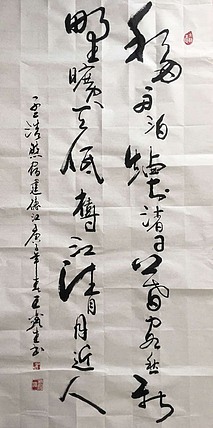 移舟泊煙渚日暮客愁新
野曠天低樹江清月近人
孟浩然宿建德江庚年王書